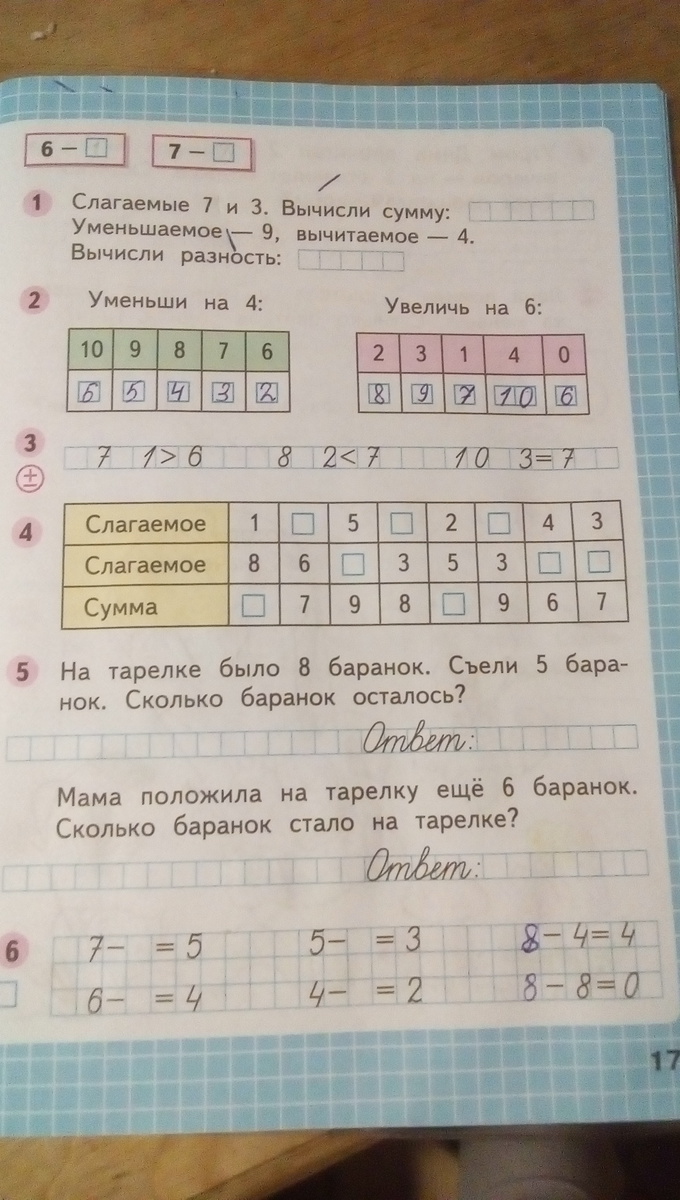 6 − □ 7 − □
1 Слагаемые 7 и 3. Вычисли сумму:
Уменьшаемое — 9, вычитаемое — 4.
Вычисли разность:
2 Уменьши на 4: Увеличь на 6:
10 9 8 7 6 2 3 1 4 0
6 5 4 3 2 8 9 7 10 6
3 7 1 > 6 8 2 < 7 10 3 = 7
±
4 Слагаемое 1 □ 5 □ 2 □ 4 3
Слагаемое 8 6 □ 3 5 3 □ □
Сумма □ 7 9 8 □ 9 6 7
5 На тарелке было 8 баранок. Съели 5 бара-
нок. Сколько баранок осталось?
Ответ:
Мама положила на тарелку ещё 6 баранок.
Сколько баранок стало на тарелке?
Ответ:
6 7− = 5 5− = 3 8− 4= 4
6− = 4 4− = 2 8− 8=0
17